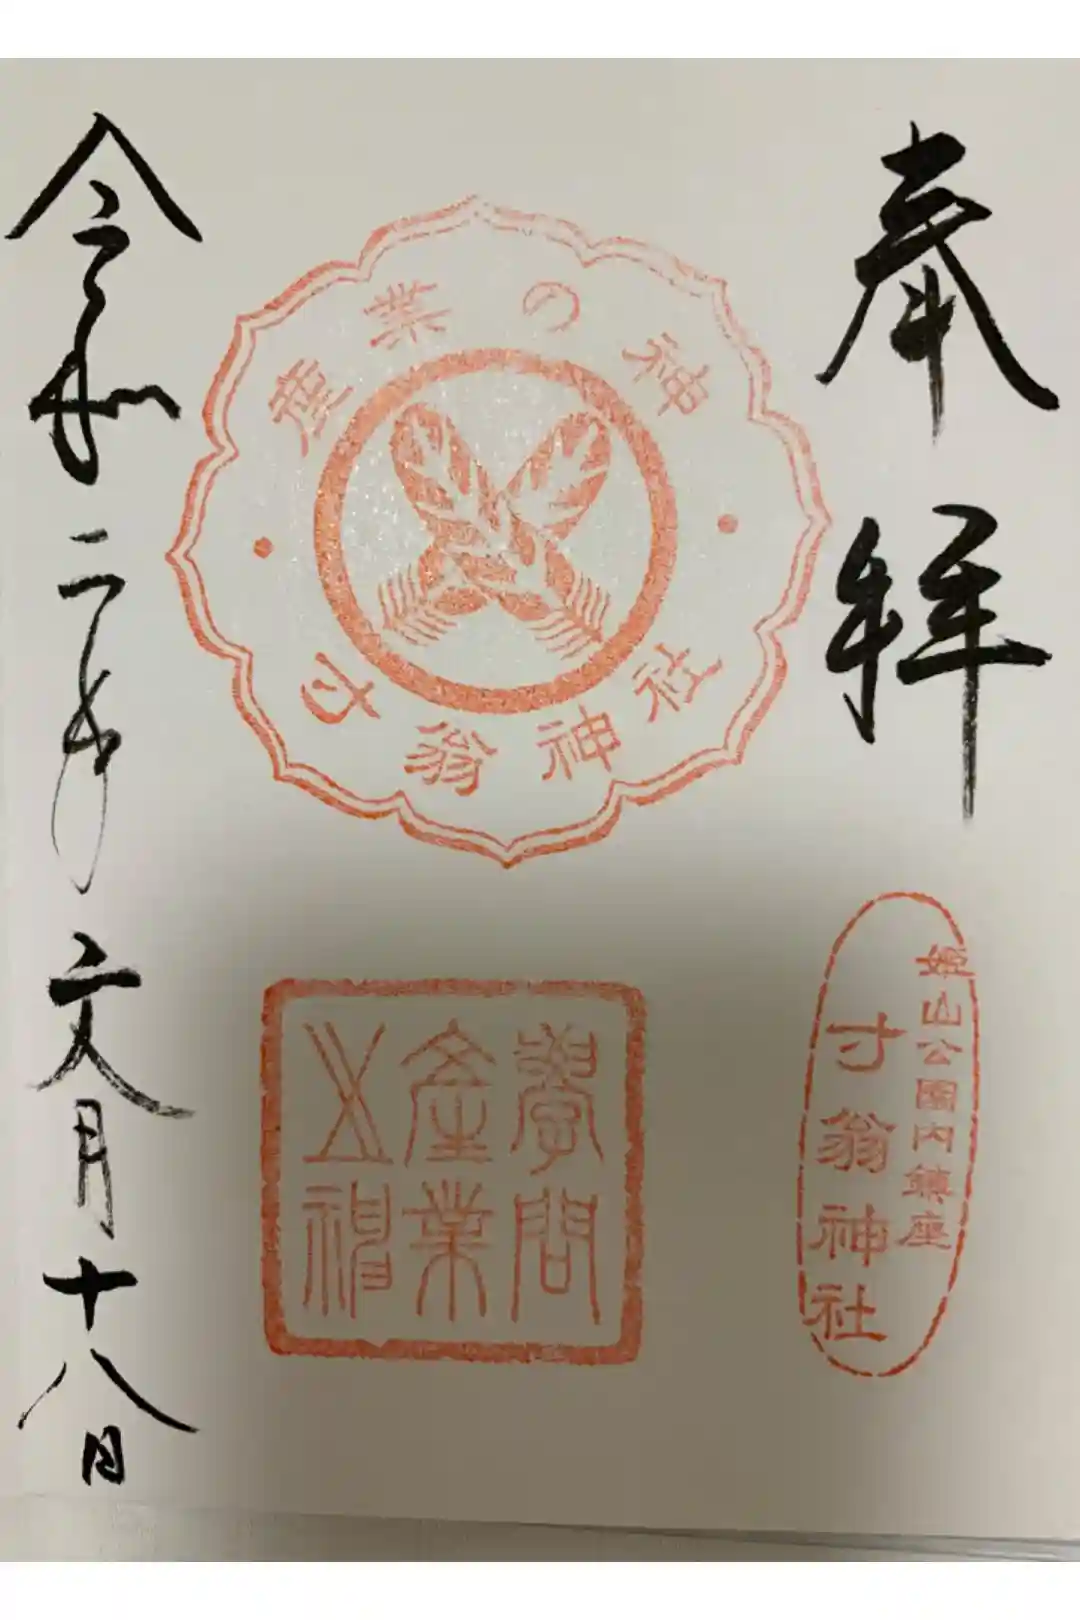 奉拝
姫山公園内鎮座
寸翁神社
産業の神
寸翁神社
學問
産業
之神
令和二年文月十八日